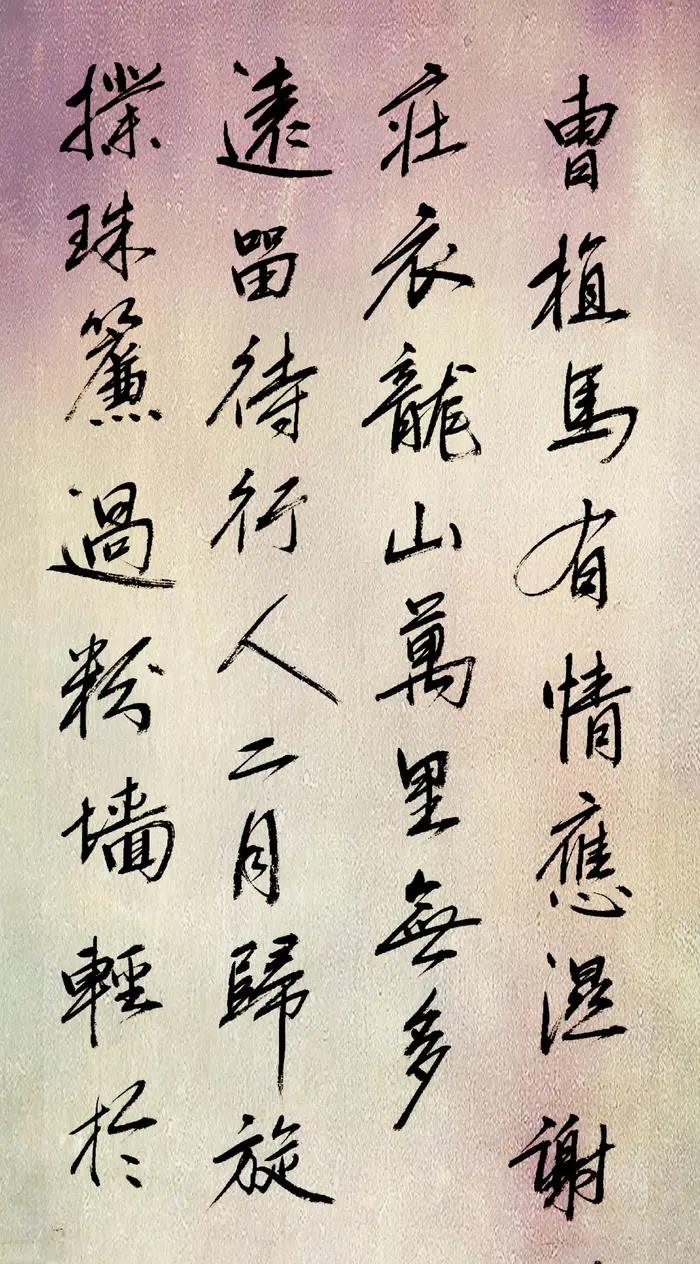 曹植馬有情應濕謝
莊衣龍山萬里無多
遠留待行人二月歸旋
撲珠簾過粉墻輕於